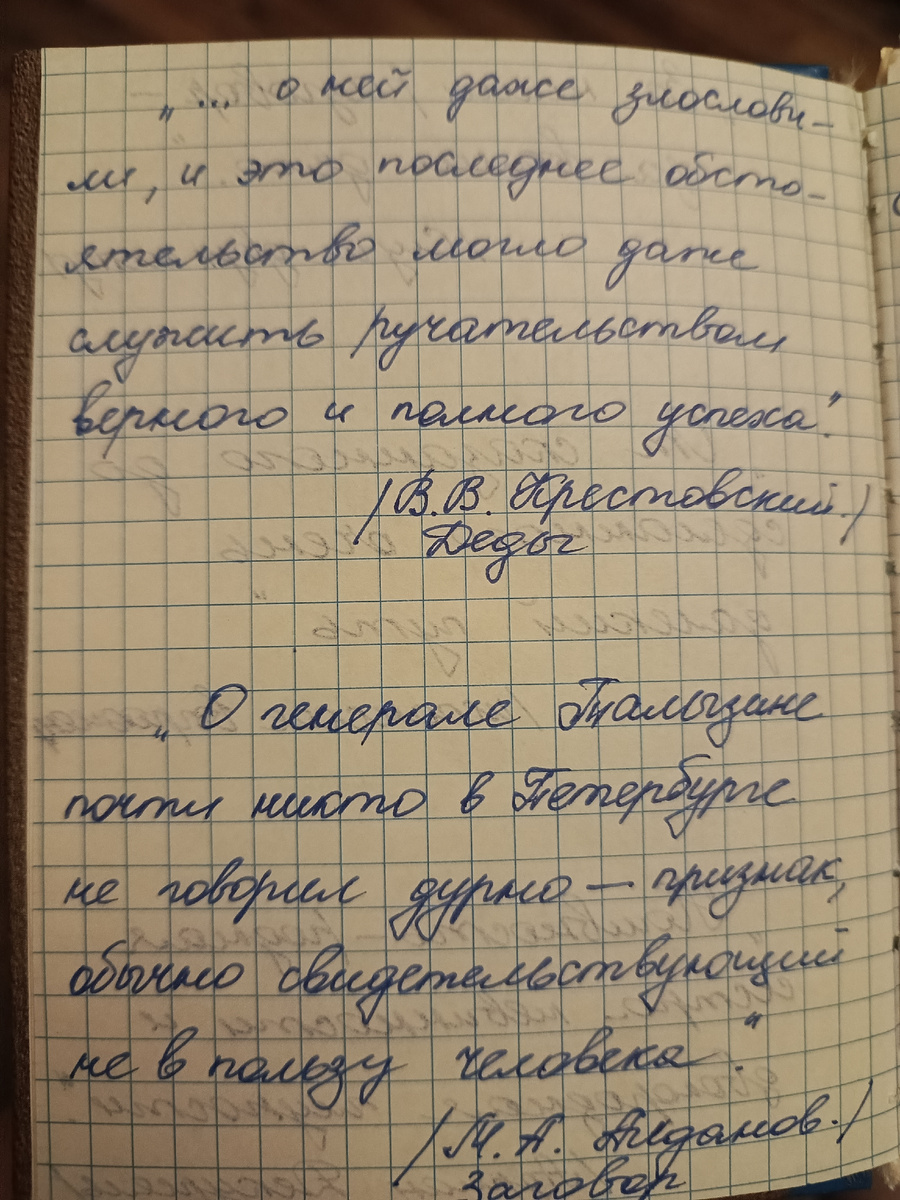 „... о ней даже злослови-
ли, и это последнее обсто-
ятельство могло даже
служить ручательством
верного и полного успеха".
/В.В. Крестовский./
Деды
„О генерале Талызине
почти никто в Петербурге
не говорил дурно — признак,
обычно свидетельствующий
не в пользу человека".
/М.А. Алданов./
Заговор